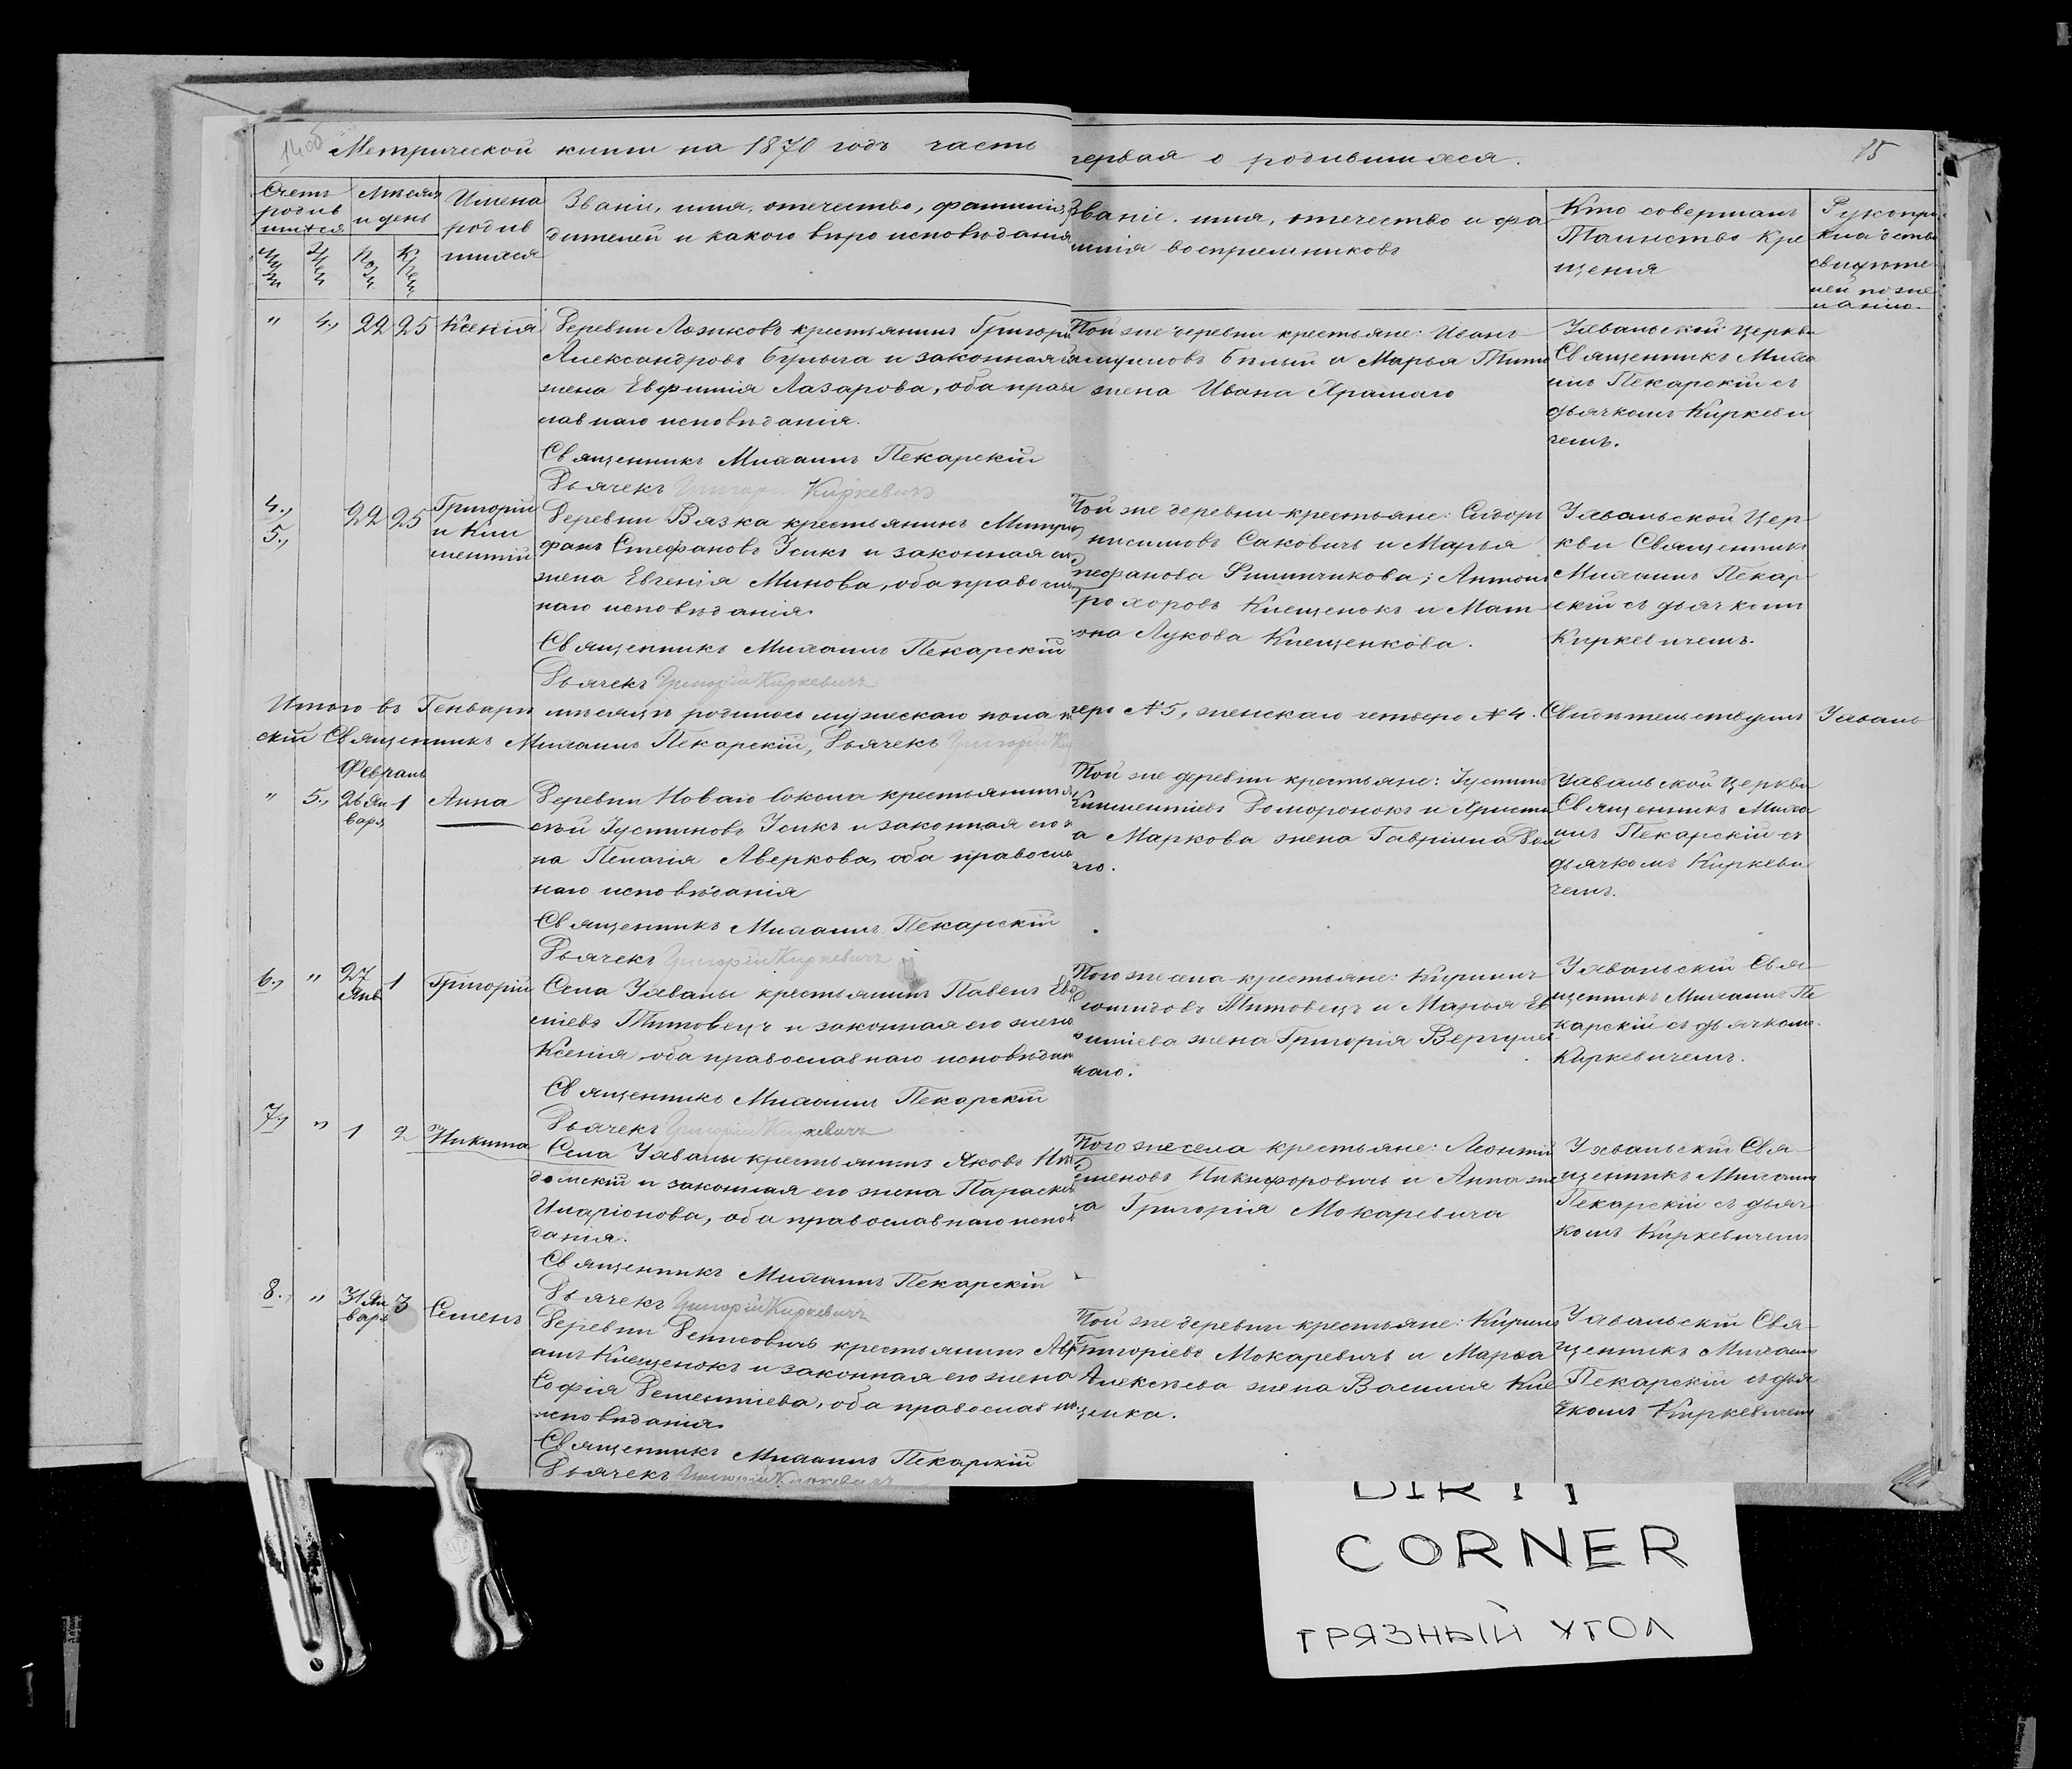 14об
Метрической книги на 1870 годъ часть первая о родившихся.
15
Счетъ родившихся
Мѣсяцъ и день
Имена родившихся
Званіе, имя, отечество, фамилія
дителей и какого вѣро исповѣданія
Званіе, имя, отечество и фа
милія воспріемниковъ
Кто совершалъ
Таинство Кре
щенія
Рукопри
кладство
свидѣте
лей по же
ланію.
" 4., 22 25 Ксенія
Деревни Ложковъ крестьянинъ Григорі
Александровъ Булыга и законная е
жена Евфимія Лазарова, оба прав
лавнаго исповѣданія.
Священникъ Михаилъ Пекарскій
Дьячекъ Григорій Киркевичъ
Той же деревни крестьяне: Иванъ
Бѣлый и Марья Тимо
жена Ивана Храмаго
Уявальской церкви
Священникъ Миха
илъ Пекарскій съ
дьячкомъ Киркеви
чемъ.
4., 5., 22 25 Григорій
и Кли
ментій
Деревни Вязка крестьянинъ Митро
фанъ Стефановъ Усикъ и законная ег
жена Евгенія Минова, оба правосла
наго исповѣданія.
Священникъ Михаилъ Пекарскій
Дьячекъ Григорій Киркевичъ
Той же деревни крестьяне: Сидоръ
нисимовъ Саковичъ и Марья
тефанова Филипчикова; Антонъ
Прохоровъ Клещенокъ и Мат
она Лукова Клещенкова.
Уявальской Цер
кви Священникъ
Михаилъ Пекар
скій съ дьячкомъ
Киркевичемъ.
Итого въ Генварѣ мѣсяцѣ родилося мужескаго пола п теро №5, женскаго четверо №4. Свидѣтельствуемъ Уяваль
скій Священникъ Михаилъ Пекарскій, Дьячекъ Григорій Ки
Февраль
" 5., 26 Ян
варя 1 Анна
Деревни Новаго Сокола крестьянинъ А
ксѣй Іустиновъ Усикъ и законная его ж
на Пелагія Аверкова, оба правосла
наго исповѣданія
Священникъ Михаилъ Пекарскій
Дьячекъ Григорій Киркевичъ
Той же деревни крестьяне: Іустинъ
Климентіевъ Доморонокъ и Христи
а Маркова жена Гавріила
го.
Уявальской Церкви
Священникъ Миха
илъ Пекарскій съ
дьячкомъ Киркеви
чемъ.
6., " 27
Янв 1 Григорій
Села Уявалы крестьянинъ Павелъ Ев
Титовецъ и законная его жена
Ксенія, оба православнаго исповѣдан
Священникъ Михаилъ Пекарскій
Дьячекъ Григорій Киркевичъ
Того же села крестьяне: Кирилъ
Титовецъ и Марья Ев
жена Григорія
каго.
Уявальскій Свя
щенникъ Михаилъ Пе
карскій съ дьячкомъ
Киркевичемъ.
7., " 1 2 Никита
Села Уявалы крестьянинъ Яковъ
и законная его жена Параске
Иларіонова, оба православнаго испов
данія.
Священникъ Михаилъ Пекарскій
Дьячекъ Григорій Киркевичъ
Того же села крестьяне: Леонтій
Семеновъ Никифоровичъ и Анна же
а Григорія Мокаревича
Уявальскій Свя
щенникъ Михаилъ
Пекарскій съ дьяч
комъ Киркевичемъ
8., " 31 Ян
варя 3 Семенъ
Деревни Денисовичъ крестьянинъ Авр
амъ Клещенокъ и законная его жена
Софія Дементіева, оба православн
исповѣданія.
Священникъ Михаилъ Пекарскій
Дьячекъ Григорій Киркевичъ
Той же деревни крестьяне: Кирилъ
Григоріевъ Мокаревичъ и Марѳа
Алексѣева жена Василія Кле
щенка.
Уявальскій Свя
щенникъ Михаилъ
Пекарскій съ дья
чкомъ Киркевичемъ
DIRTY
CORNER
ГРЯЗНЫЙ УГОЛ